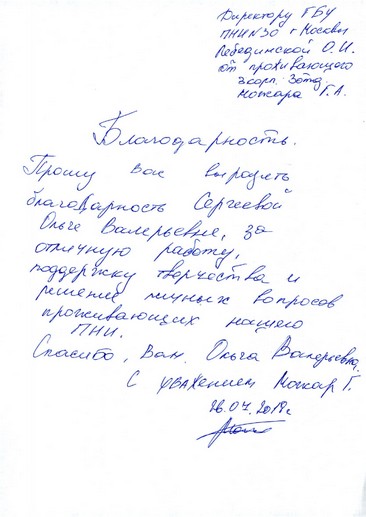 Директору ГБУ
ПНИ №30 г Москвы
Лебединской О.И.
от проживающего
3 корп. 3 отд.
Можара Г.А.
Благодарность.
Прошу вас выразить
благодарность Сергеевой
Ольге Валерьевне, за
отличную работу,
поддержку творчества и
решение личных вопросов
проживающих нашего
ПНИ.
Спасибо, Вам. Ольга Валерьевна.
С уважением Можар Г.
26.07.2019г